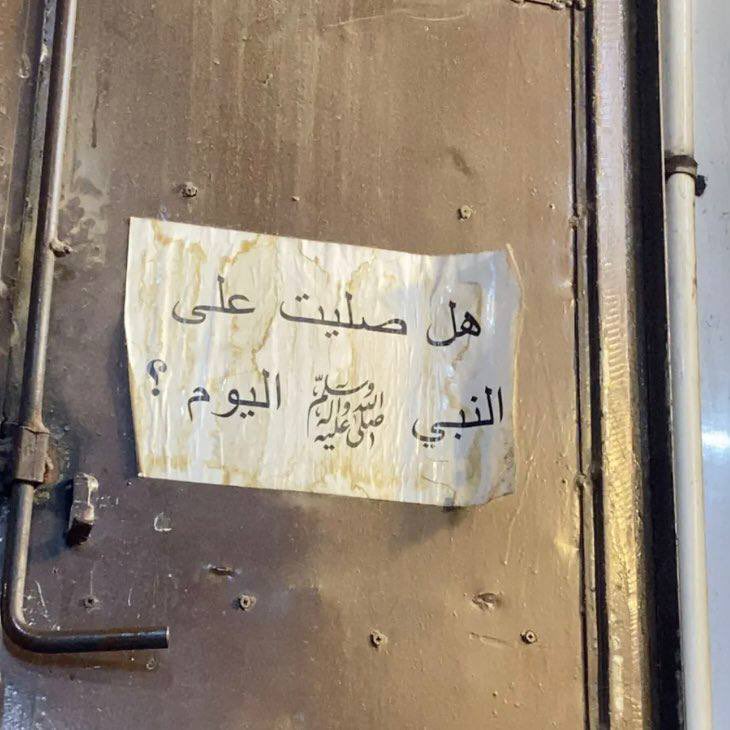 هل صليت على
النبي صلى الله عليه وآله وسلم اليوم ؟